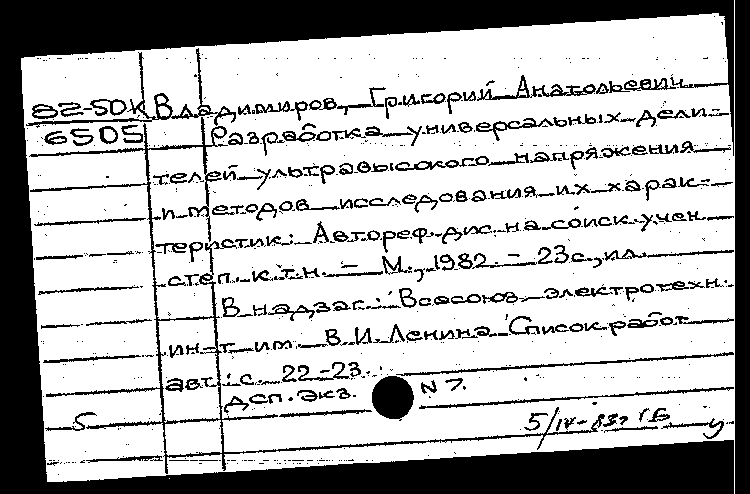 82-5DK Владимиров, Григорий Анатольевич
6505 Разработка универсальных дели-
телей ультравысокого напряжения
и методов исследования их харак-
теристик: Автореф. дис. на соиск. учен
степ. к.т.н. – М., 1982. – 23с., ил.
В надзаг.: Всесоюз. электротехн.
ин-т им. В.И. Ленина Список работ
авт.: с. 22-23.
ДСП. Экз. N 7.
5 5/IV-83г
у